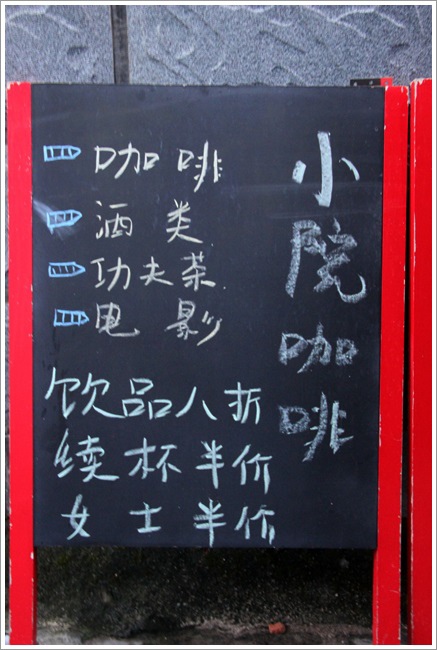 小院咖啡
咖啡
酒类
功夫茶
电影
饮品八折
续杯半价
女士半价